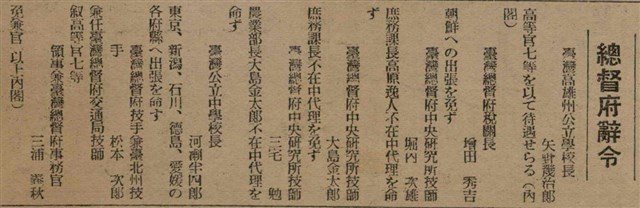 總督府辭令
臺灣高雄州公立學校長
矢野茂治郎
高等官七等を以て待遇せらる(內
閣)
臺灣總督府稅關長
增田秀吉
朝鮮への出張を免ず
臺灣總督府中央研究所技師
堀內次雄
庶務課長高原逸人不在中代理を命
ず
臺灣總督府中央研究所技師
大島金太郎
庶務課長不在中代理を免ず
臺灣總督府中央研究所技師
三宅勉
農業部長大島金太郎不在中代理を
命ず
臺灣公立中學校長
河瀨半四郎
東京、新潟、石川、德島、愛媛の
各府縣へ出張を命ず
臺灣總督府技手兼臺北州技
手
松本次郎
兼任臺灣總督府交通局技師
敍高等官七等
領事兼臺灣總督府事務官
三浦義秋
免兼官 以上內閣)